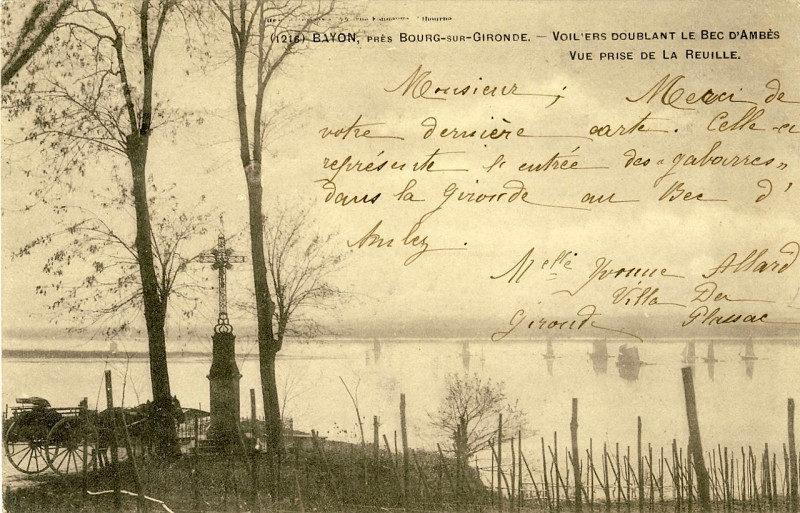 (1216) BAYON, PRÈS BOURG-SUR-GIRONDE. — VOIL'ERS DOUBLANT LE BEC D'AMBÈS
VUE PRISE DE LA REUILLE.
Monsieur ; Merci de
votre dernière carte. Celle-ci
représente l'entrée des "gabarres"
dans la Gironde au Bec d'
Ambez.
Melle Yvonne Allard
Villa
Gironde Plassac